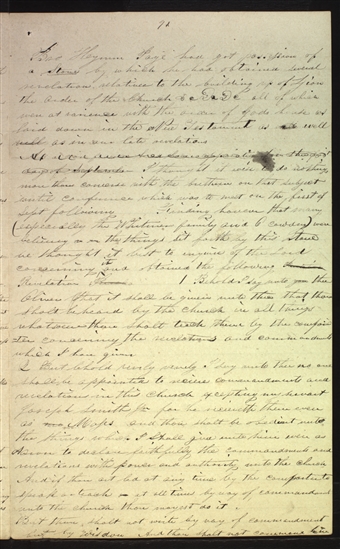 92
Page had got possession of
a Stone by which he had obtained several
revelations, relative to the building up of Zion
the order of the Church &c &c &c all of which
were at variance with the order of Gods house as
laid down in the New Testament as well
as in our late revelations
I thought it wisdom to do nothing
more than converse with the brethren on that subject
until conference which was to meet on the first of
Sept following Finding however that many
(especially the Whitmer family and O Cowdery) were
believing in the things set forth by this Stone
we thought it best to inquire of the Lord
concerning and obtained the following
Revelation 1 Behold I say unto thee
Oliver that it shall be given unto thee that thou
shalt be heard by the Church in all things
whatsoever thou shalt teach them by the comforter
concerning the revelations and commandments
which I have given
2 But behold verily verily I say unto thee no one
shall be appointed to receive commandments and
revelations in this Church excepting my servant
Joseph Smith Jr for he receiveth them even
as Moses And thou shalt be obedient unto
the things which I shall give unto him even as
Aaron to declare faithfully the commandments and
revelations with power and authority unto the church
And if thou art led at any time by the comforter to
speak or teach or at all times by way of commandment
unto the church thou mayest do it
But thou shalt not write by way of commandment
but by Wisdom And thou shalt not command him